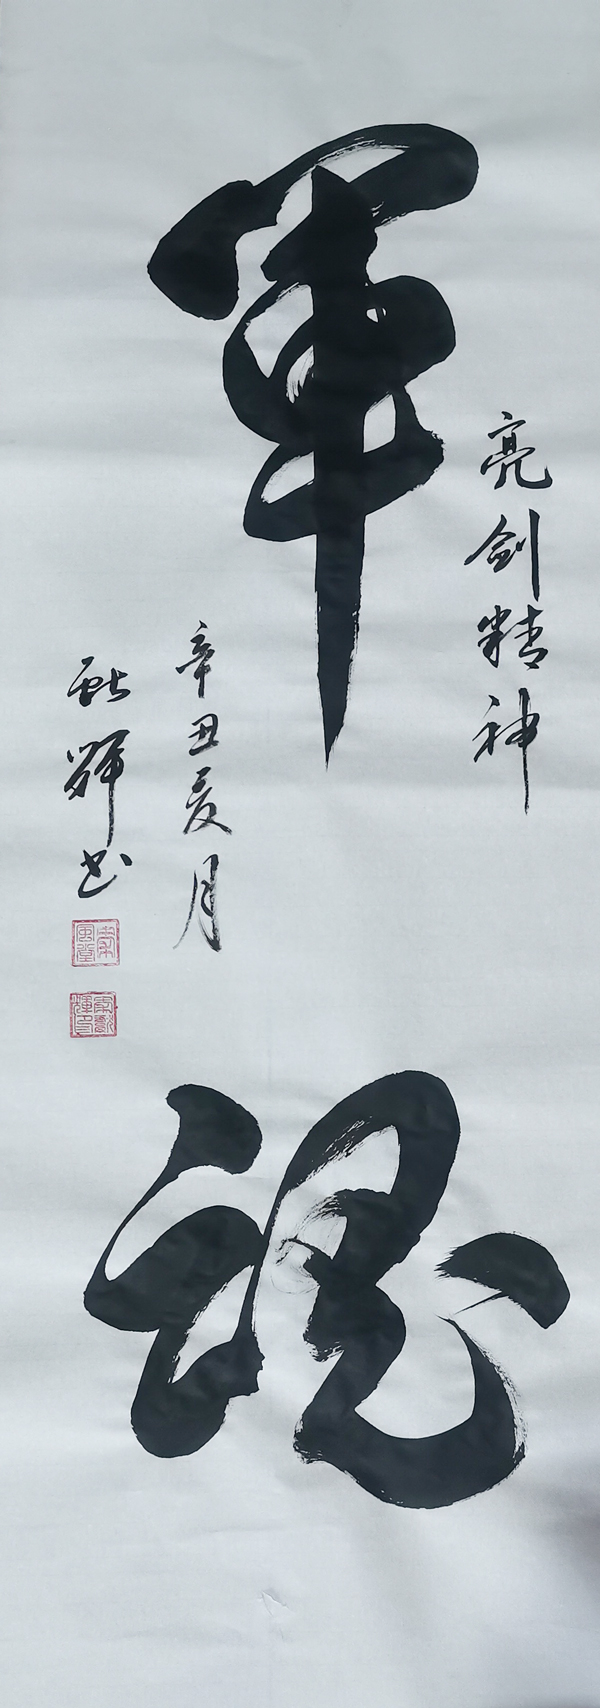 軍魂
亮剑精神
辛丑夏月
献輝书